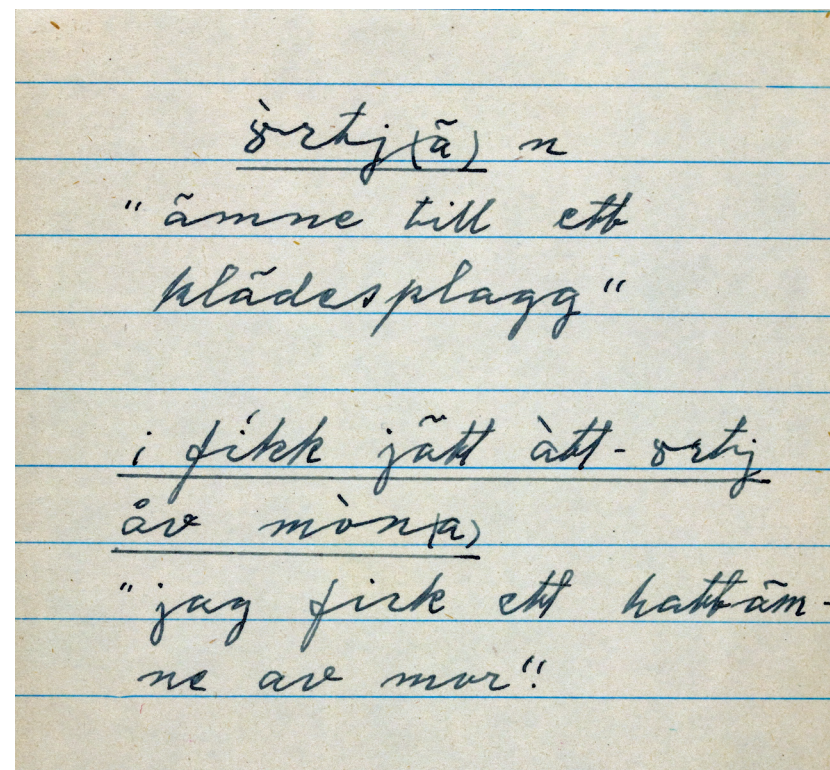 òrtj(ä) n
"ämne till ett
klädesplagg"
i fíkk jätt àtt-ortj
åv mòn(a)
"jag fick ett hattäm-
ne av mor".